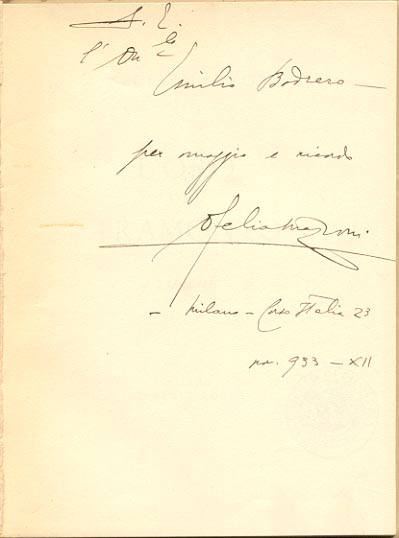 A. S. E.
l'On.le
Emilio Bodrero —
per omaggio e ricordo
Ofelia Mazzoni
— Milano — Corso Italia 23
nov. 933 — XII